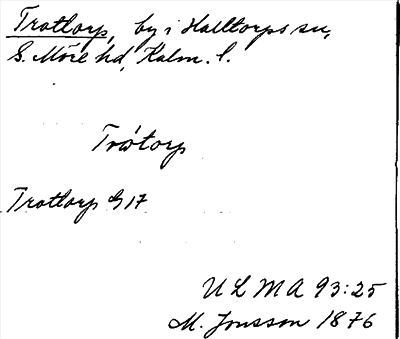 Trotlorp, by i Halltorps sn,
S. Möre hd, Kalm. l.
Tråtorp
Trotlorp G 17
ULMA 93:25
M. Jonsson 1876